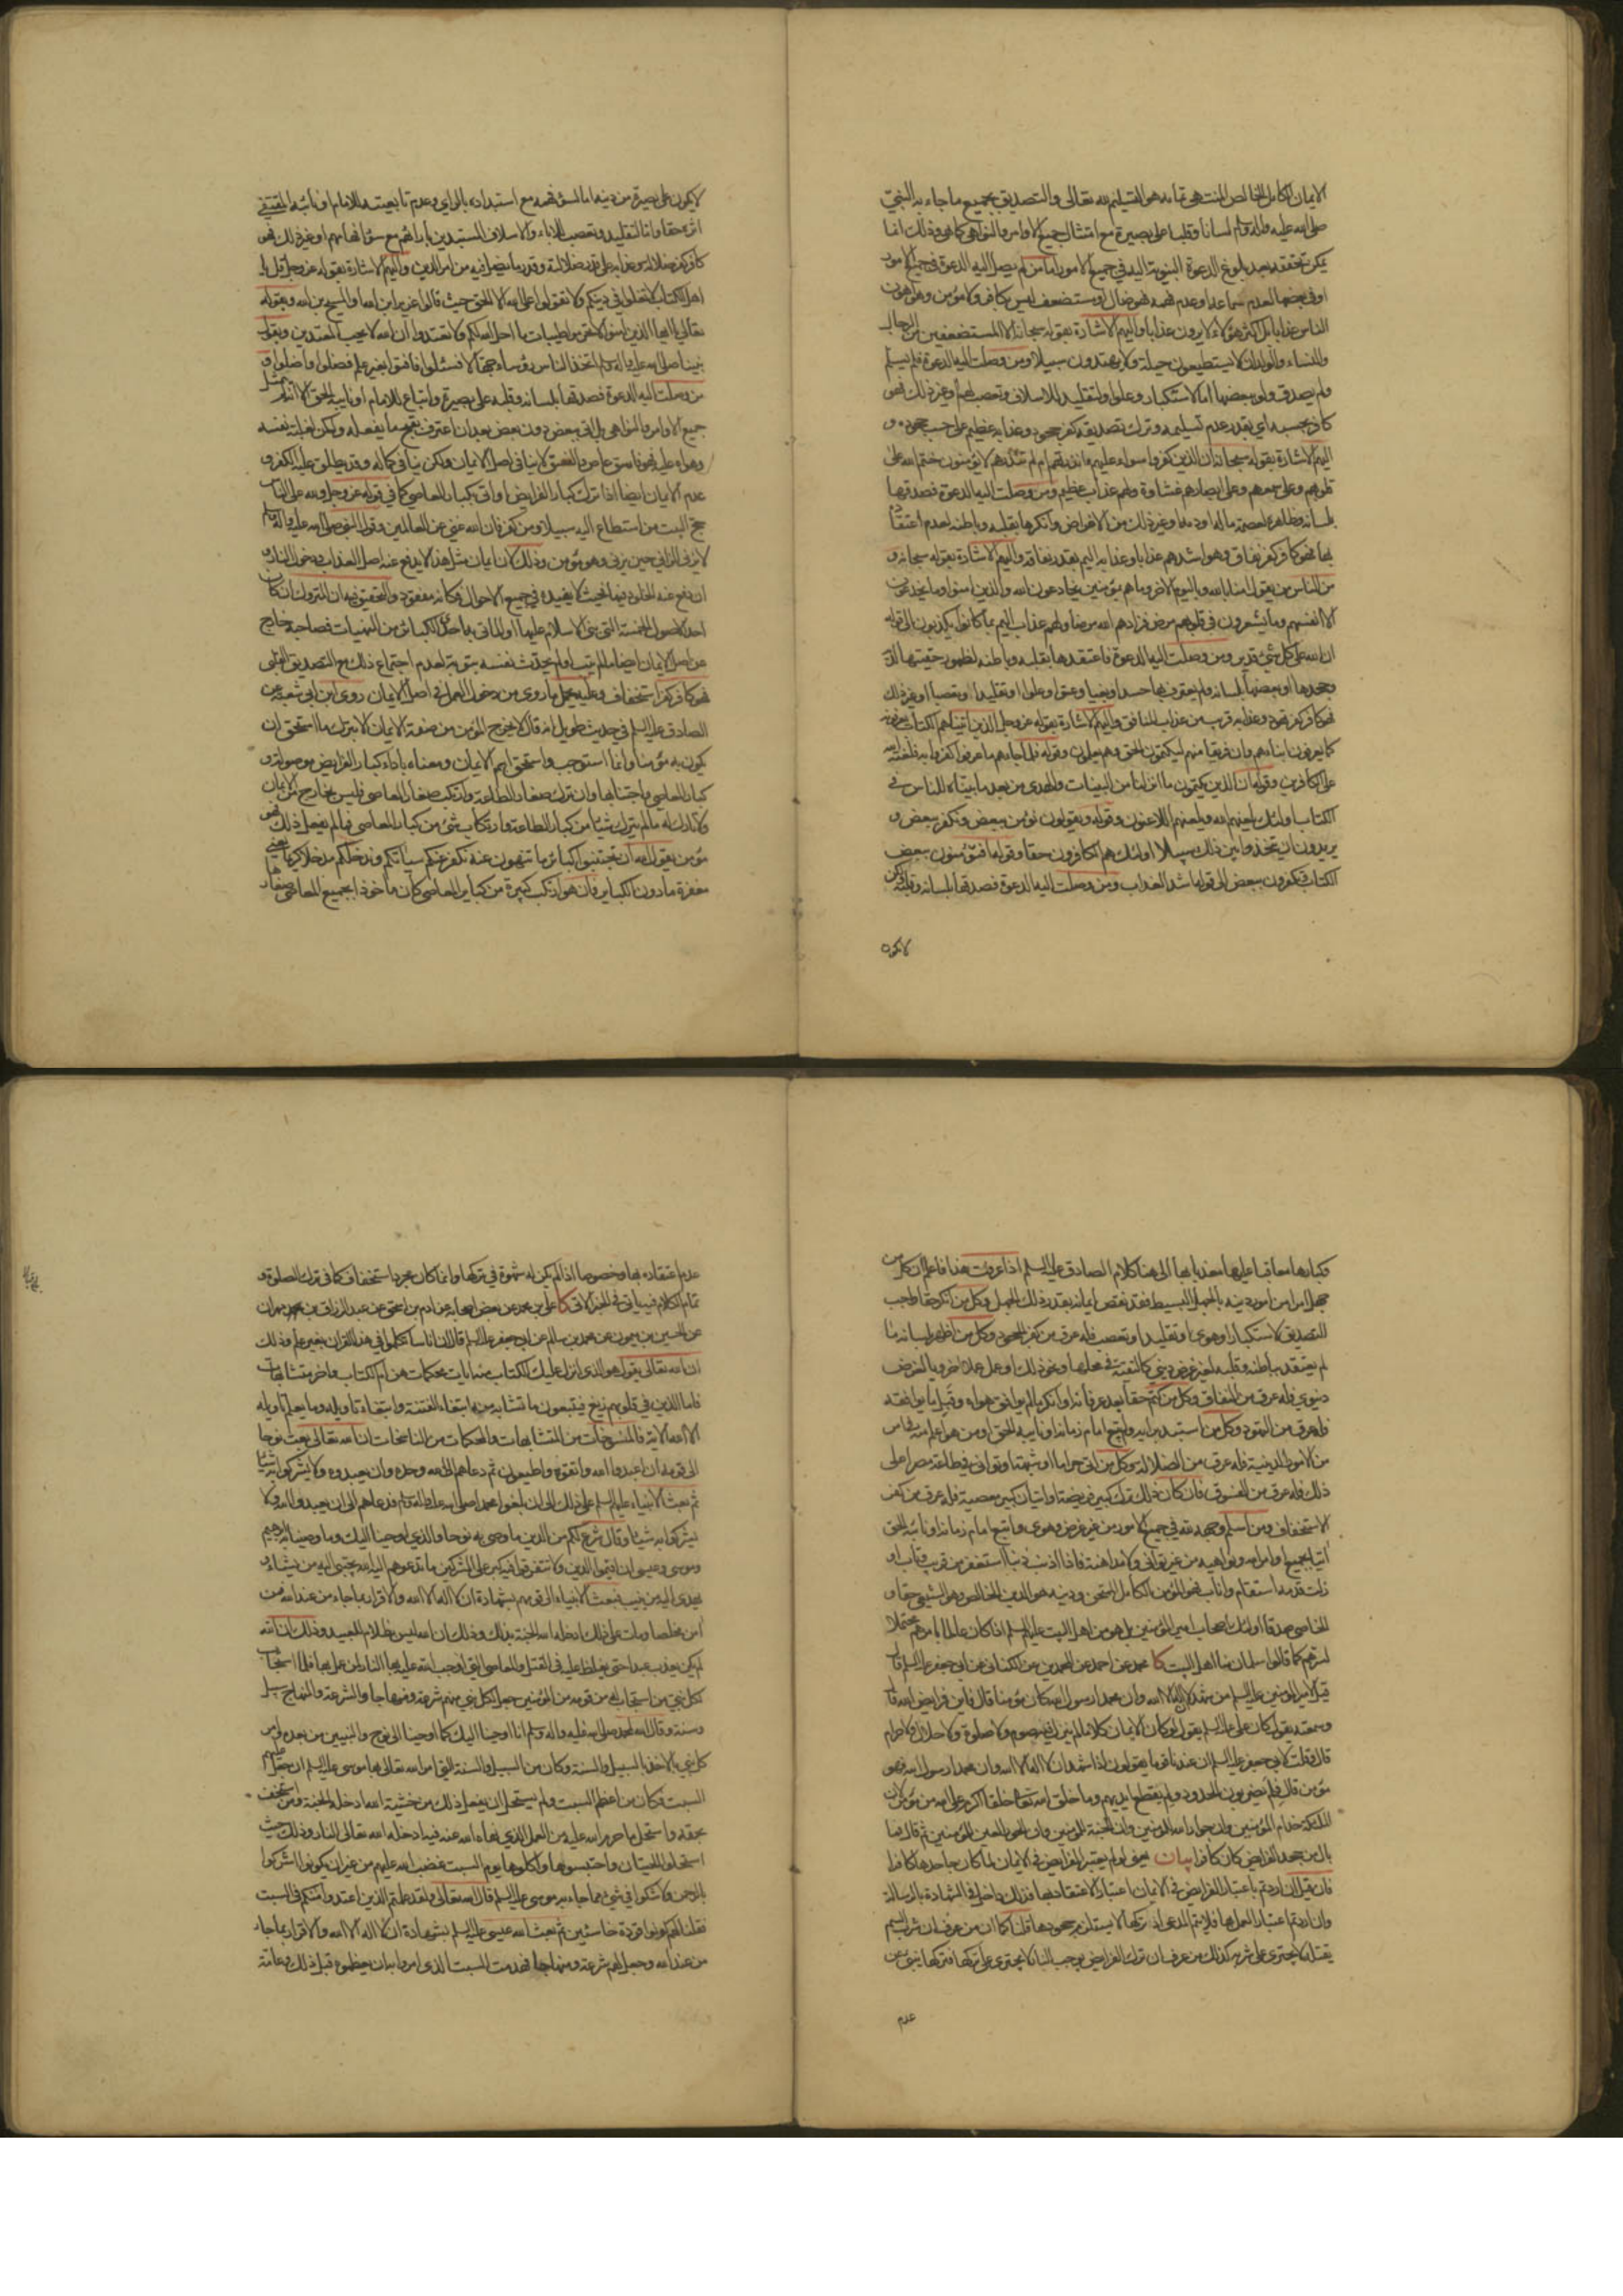 الايمان الكامل الخالص المنتهى تمامه هو التسليم لله تعالى والتصديق بجميع ما جاء به النبي
صلى الله عليه وآله وسلم لسانا وقلبا على بصيرة مع امتثال جميع الاوامر والنواهي كما هي وذلك انما
يمكن تحققه بعد بلوغ الدعوة النبوية اليه في جميع الامور اما من لم يصل اليه الدعوة في جميع الامور
او في بعضها لعدم سماعه او عدم فهمه فهو ضال او مستضعف ليس بكافر ولا مؤمن وهو اهون
الناس عذابا بل اكثر هؤلاء لا يرون عذابا واليهم الاشارة بقوله سبحانه الا المستضعفين من الرجال
والنساء والولدان لا يستطيعون حيلة ولا يهتدون سبيلا ومن وصلت اليه الدعوة فلم يسلم
ولم يصدق ولو ببعضها اما لاستكبار وعلو او لتقليد للاسلاف وتعصب لهم او غير ذلك فهو
كافر بحسبه اي بقدر عدم تسليمه وترك تصديقه كفر جحود وعذابه عظيم على حسب جحوده و
اليهم الاشارة بقوله سبحانه ان الذين كفروا سواء عليهم ءانذرتهم ام لم تنذرهم لا يؤمنون ختم الله على
قلوبهم وعلى سمعهم وعلى ابصارهم غشاوة ولهم عذاب عظيم ومن وصلت اليه الدعوة فصدقها
بلسانه وظاهره لعصمة ماله او دمه او غير ذلك من الاغراض وانكرها بقلبه وباطنه لعدم اعتقاده
بها فهو كافر كفر نفاق وهو اشدهم عذابا وعذابه اليم بقدر نفاقه واليهم الاشارة بقوله سبحانه و
من الناس من يقول امنا بالله وباليوم الاخر وما هم بمؤمنين يخادعون الله والذين امنوا وما يخدعون
الا انفسهم وما يشعرون في قلوبهم مرض فزادهم الله مرضا ولهم عذاب اليم بما كانوا يكذبون الى قوله
ان الله على كل شئ قدير ومن وصلت اليه الدعوة فاعتقدها بقلبه وباطنه لظهور حقيتها لديه
وجحدها او بعضها بلسانه ولم يعترف بها حسدا وبغيا وعتوا وعلوا او تقليدا وتعصبا او غير ذلك
فهو كافر كفر تهود وعذابه قريب من عذاب المنافق واليهم الاشارة بقوله عز وجل الذين اتيناهم الكتاب يعرفونه
كما يعرفون ابناءهم وان فريقا منهم ليكتمون الحق وهم يعلمون وقوله فلما جاءهم ما عرفوا كفروا به فلعنة الله
على الكافرين وقوله ان الذين يكتمون ما انزلنا من البينات والهدى من بعد ما بيناه للناس في
الكتاب اولئك يلعنهم الله ويلعنهم اللاعنون وقوله ويقولون نؤمن ببعض ونكفر ببعض و
يريدون ان يتخذوا بين ذلك سبيلا اولئك هم الكافرون حقا وقوله افتؤمنون ببعض
الكتاب وتكفرون ببعض الى قوله اشد العذاب ومن وصلت اليه الدعوة فصدقها بلسانه وقلبه ولكن
لا يكون
لا يكون على بصيرة من دينه اما لسوء فهمه مع استبداده بالراي وعدم تابعيته للامام او نائبه المقتفى
اثره حقا واما لتقليد وتعصب للاباء والاسلاف المستبدين بارائهم مع سوء افهامهم او غير ذلك فهو
كافر كفر ضلالة وعذابه على قدر ضلالته وقدر ما يضل فيه من امر الدين واليهم الاشارة بقوله عز وجل قل يا
اهل الكتاب لا تغلوا في دينكم ولا تقولوا على الله الا الحق حيث قالوا عزير ابن الله والمسيح بن الله وبقوله
تعالى يا ايها الذين امنوا لا تحرموا طيبات ما احل الله لكم ولا تعتدوا ان الله لا يحب المعتدين وبقول
نبينا صلى الله عليه وآله وسلم اتخذ الناس رؤساء جهالا فسئلوا فافتوا بغير علم فضلوا واضلوا و
من وصلت اليه الدعوة فصدقها بلسانه وقلبه على بصيرة واتباع للامام او نايبه الحق الا انه لم يمتثل
جميع الاوامر والنواهي بل اتى ببعض دون بعض بعد ان اعترف بقبح ما يفعله ولكن لغلبة نفسه
وهواه عليه فهو فاسق عاص والفسق لا ينافي اصل الايمان ولكن ينافي كماله وقد يطلق عليه الكفر و
عدم الايمان ايضا اذا ترك كبار الفرايض او اتى بكبار المعاصي كما في قوله عز وجل ولله على الناس
حج البيت من استطاع اليه سبيلا ومن كفر فان الله غني عن العالمين وقول النبي صلى الله عليه وآله وسلم
لا يزني الزاني حين يزني وهو مؤمن وذلك لان ايمان مثل هذا لا يدفع عنه اصل العذاب ودخول النار و
ان دفع عنه الخلود فيها فحيث لا يفيده في جميع الاحوال فكانه مفقود والتحقيق فيه ان المتروك ان كان
احد الاصول الخمسة التي بني الاسلام عليها او الماتي به احدى الكبائر من المنهيات فصاحبه خارج
عن اصل الايمان ايضا ما لم يتب او لم يحدث نفسه بتوبة لعدم اجتماع ذلك مع التصديق القلبي
فهو كافر كفر استخفاف وعليه يحمل ما روي من دخول العمل في اصل الايمان روى ابن ابي شعبة عن
الصادق عليه السلم في حديث طويل انه قال لا يخرج المؤمن من صفة الايمان الا بترك ما استحق ان
يكون به مؤمنا وانما استوجب واستحق اسم الايمان ومعناه باداء كبار الفرايض موصولة و
كبار المعاصي واجتنابها وان ترك صغار الطاعة وارتكب صغار المعاصي فليس بخارج من الايمان
ولا تارك له ما لم يترك شيئا من كبار الطاعة وارتكاب شئ من كبار المعاصي فما لم يفعل ذلك فهو
مؤمن يقول الله ان تجتنبوا كبائر ما تنهون عنه نكفر عنكم سيئاتكم وندخلكم مدخلا كريما يعني
مغفرة ما دون الكباير فان هو ارتكب كبيرة من كبائر المعاصي كان ماخوذا بجميع المعاصي صغارها
وكبارها معاقبا عليها معذبا بها الى هنا كلام الصادق عليه السلم اذا عرفت هذا فاعلم ان كل من
جهل امرا من امور دينه بالجهل البسيط فقد نقص ايمانه بقدر ذلك الجهل وكل من انكر حقا واجب
التصديق لاستكبار او هوى او تقليد او تعصب فله عرق من كفر الجحود وكل من اظهر بلسانه ما
لم يعتقد بباطنه وقلبه لغير غرض ديني كالتقية في محلها ونحو ذلك او عمل عملا اخرويا لغرض
دنيوي فله عرق من النفاق وكل من كتم حقا بعد عرفانه او انكر ما لم يوافق هواه وقبل ما يوافقه
فله عرق من التهود وكل من استبد برايه ولم يتبع امام زمانه او نايبه الحق او من هو اعلم منه في امر
من الامور الدينية فله عرق من الضلالة وكل من اتى حراما او شبهة او توانى في طاعة مصرا على
ذلك فله عرق من الفسوق فان كان ذلك ترك كبير فريضة او اتيان كبير معصية فله عرق من كفر
الاستخفاف ومن اسلم وجهه لله في جميع الامور من غير غرض وهوى واتبع امام زمانه او نائبه الحق
اتيا بجميع اوامر الله ونواهيه من غير توانى ولا مداهنة فاذا اذنب ذنبا استغفر من قريب وتاب او
زلت قدمه استقام واناب فهو المؤمن الكامل الممتحن ودينه هو الدين الخالص وهو الشيعي حقا و
الخاصي صدقا اولئك اصحاب امير المؤمنين بل هو من اهل البيت عليهم السلم اذا كان عالما بامرهم محتملا
لسرهم كما قالوا سلمان منا اهل البيت كا محمد عن احمد عن المحمدين عن الكناني عن ابي جعفر عليه السلم قال
قيل لامير المؤمنين عليه السلم من شهد ان لا اله الا الله وان محمدا رسول الله كان مؤمنا قال فاين فرايض الله قال
وسمعته يقول كان علي عليه السلم يقول لو كان الايمان كلاما لم ينزل فيه صوم ولا صلوة ولا حلال ولا حرام
قال وقلت لابي جعفر عليه السلم ان عندنا قوما يقولون اذا شهد ان لا اله الا الله وان محمدا رسول الله فهو
مؤمن قال فلم يضربون الحدود ولم يقطع ايديهم وما خلق الله تعالى خلقا اكرم على الله من مؤمن لان
الملائكة خدام المؤمنين وان جوار الله للمؤمنين وان الجنة للمؤمنين وان الحور العين للمؤمنين ثم قال فما
بال من جحد الفرايض كان كافرا بيان يعني لو لم يعتبر الفرايض في الايمان لما كان جاحدها كافرا
فان قيل ان اردتم باعتبار الفرايض في الايمان اعتبار الاعتقاد بها فذلك داخل في الشهادة بالرسالة
وان اردتم اعتبار العمل بها فلا يتم المدعى اذ تركها لا يستلزم جحودها قلنا كما ان من عرف ان شرب السم
يقتله لا يجترئ على شربه كذلك من عرف ان ترك الفرايض يوجب النار لا يجترئ على تركها فتركها ينبئ عن
عدم
عدم اعتقاده بها وخصوصا اذا لم يكن له شهوة في تركها وانما كان مجرد استخفاف كما في ترك الصلوة و
تمام الكلام فيه ياتي في الخبر الاتي كا علي بن محمد عن بعض اصحابه عن ادم بن اسحق عن عبد الرزاق بن مهران
عن الحسين بن ميمون عن محمد بن سالم عن ابي جعفر عليه السلم قال ان اناسا تكلموا في هذا القران بغير علم وذلك
ان الله تعالى يقول هو الذي انزل عليك الكتاب منه ايات محكمات هن ام الكتاب واخر متشابهات
فاما الذين في قلوبهم زيغ فيتبعون ما تشابه منه ابتغاء الفتنة وابتغاء تاويله وما يعلم تاويله
الا الله الاية فالمنسوخات من المتشابهات والمحكمات من الناسخات ان الله تعالى بعث نوحا
الى قومه ان اعبدوا الله واتقوه واطيعون ثم دعاهم الى الله وحده وان يعبدوه ولا يشركوا به شيئا
ثم بعث الانبياء عليهم السلم على ذلك الى ان بلغوا محمدا صلى الله عليه وآله وسلم فدعاهم الى ان يعبدوا الله ولا
يشركوا به شيئا وقال شرع لكم من الدين ما وصى به نوحا والذي اوحينا اليك وما وصينا به ابرهيم
وموسى وعيسى ان اقيموا الدين ولا تتفرقوا فيه كبر على المشركين ما تدعوهم اليه الله يجتبي اليه من يشاء و
يهدي اليه من ينيب فبعث الانبياء الى قومهم بشهادة ان لا اله الا الله والاقرار بما جاء من عند الله فمن
امن مخلصا ومات على ذلك ادخله الله الجنة بذلك وذلك ان الله ليس بظلام للعبيد وذلك ان الله
لم يكن يعذب عبدا حتى يغلظ عليه في القتل والمعاصي التي اوجب الله عليه بها النار لمن عمل بها فلما استجاب
لكل نبي من استجاب له من قومه من المؤمنين جعل لكل نبي منهم شرعة ومنهاجا والشرعة والمنهاج سبيل
وسنة وقال الله لمحمد صلى الله عليه وآله وسلم انا اوحينا اليك كما اوحينا الى نوح والنبيين من بعده وامر
كل نبي بالاخذ بالسبيل والسنة وكان من السبيل والسنة التي امر الله تعالى بها موسى عليه السلم ان جعل عليهم
السبت وكان من اعظم السبت ولم يستحل ان يفعل ذلك من خشية الله ادخله الجنة ومن استخف
بحقه واستحل ما حرم الله عليه من العمل الذي نهاه الله عنه فيه ادخله الله تعالى النار وذلك حيث
استحلوا الحيتان واحتبسوها واكلوها يوم السبت غضب الله عليهم من غير ان يكونوا اشركوا
بالرحمن ولا شكوا في شئ مما جاء به موسى عليه السلم قال الله تعالى ولقد علمتم الذين اعتدوا منكم في السبت
فقلنا لهم كونوا قردة خاسئين ثم بعث الله عيسى عليه السلم بشهادة ان لا اله الا الله والاقرار بما جاء
من عند الله وجعل لهم شرعة ومنهاجا فهدمت السبت الذي امروا به ان يعظموه قبل ذلك وعامة